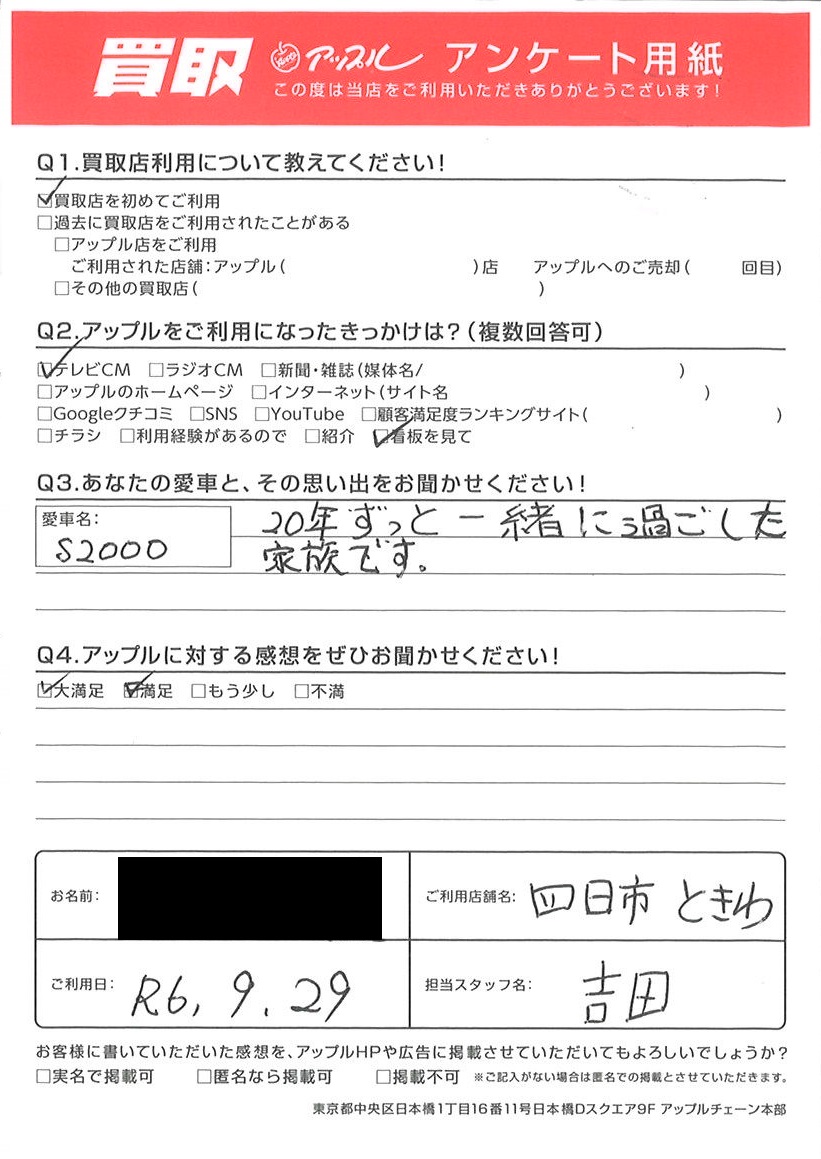 買取 アップル アンケート用紙
この度は当店をご利用いただきありがとうございます！
Q1.買取店利用について教えてください！
☑買取店を初めてご利用
□過去に買取店をご利用されたことがある
□アップル店をご利用
ご利用された店舗：アップル（ ）店 アップルへのご売却（ 回目）
□その他の買取店（ ）
Q2.アップルをご利用になったきっかけは？（複数回答可）
☑テレビCM □ラジオCM □新聞・雑誌（媒体名/ ）
□アップルのホームページ □インターネット（サイト名 ）
□Googleクチコミ □SNS □YouTube □顧客満足度ランキングサイト（ ）
□チラシ □利用経験があるので □紹介 ☑看板を見て
Q3.あなたの愛車と、その思い出をお聞かせください！
愛車名：
S2000
20年ずっと一緒に過ごした
家族です。
Q4.アップルに対する感想をぜひお聞かせください！
☑大満足 ☑満足 □もう少し □不満
お名前：
ご利用店舗名： 四日市ときわ
ご利用日： R6, 9. 29
担当スタッフ名： 吉田
お客様に書いていただいた感想を、アップルHPや広告に掲載させていただいてもよろしいでしょうか？
□実名で掲載可 □匿名なら掲載可 □掲載不可 ※ご記入がない場合は匿名での掲載とさせていただきます。
東京都中央区日本橋1丁目16番11号日本橋Dスクエア9F アップルチェーン本部